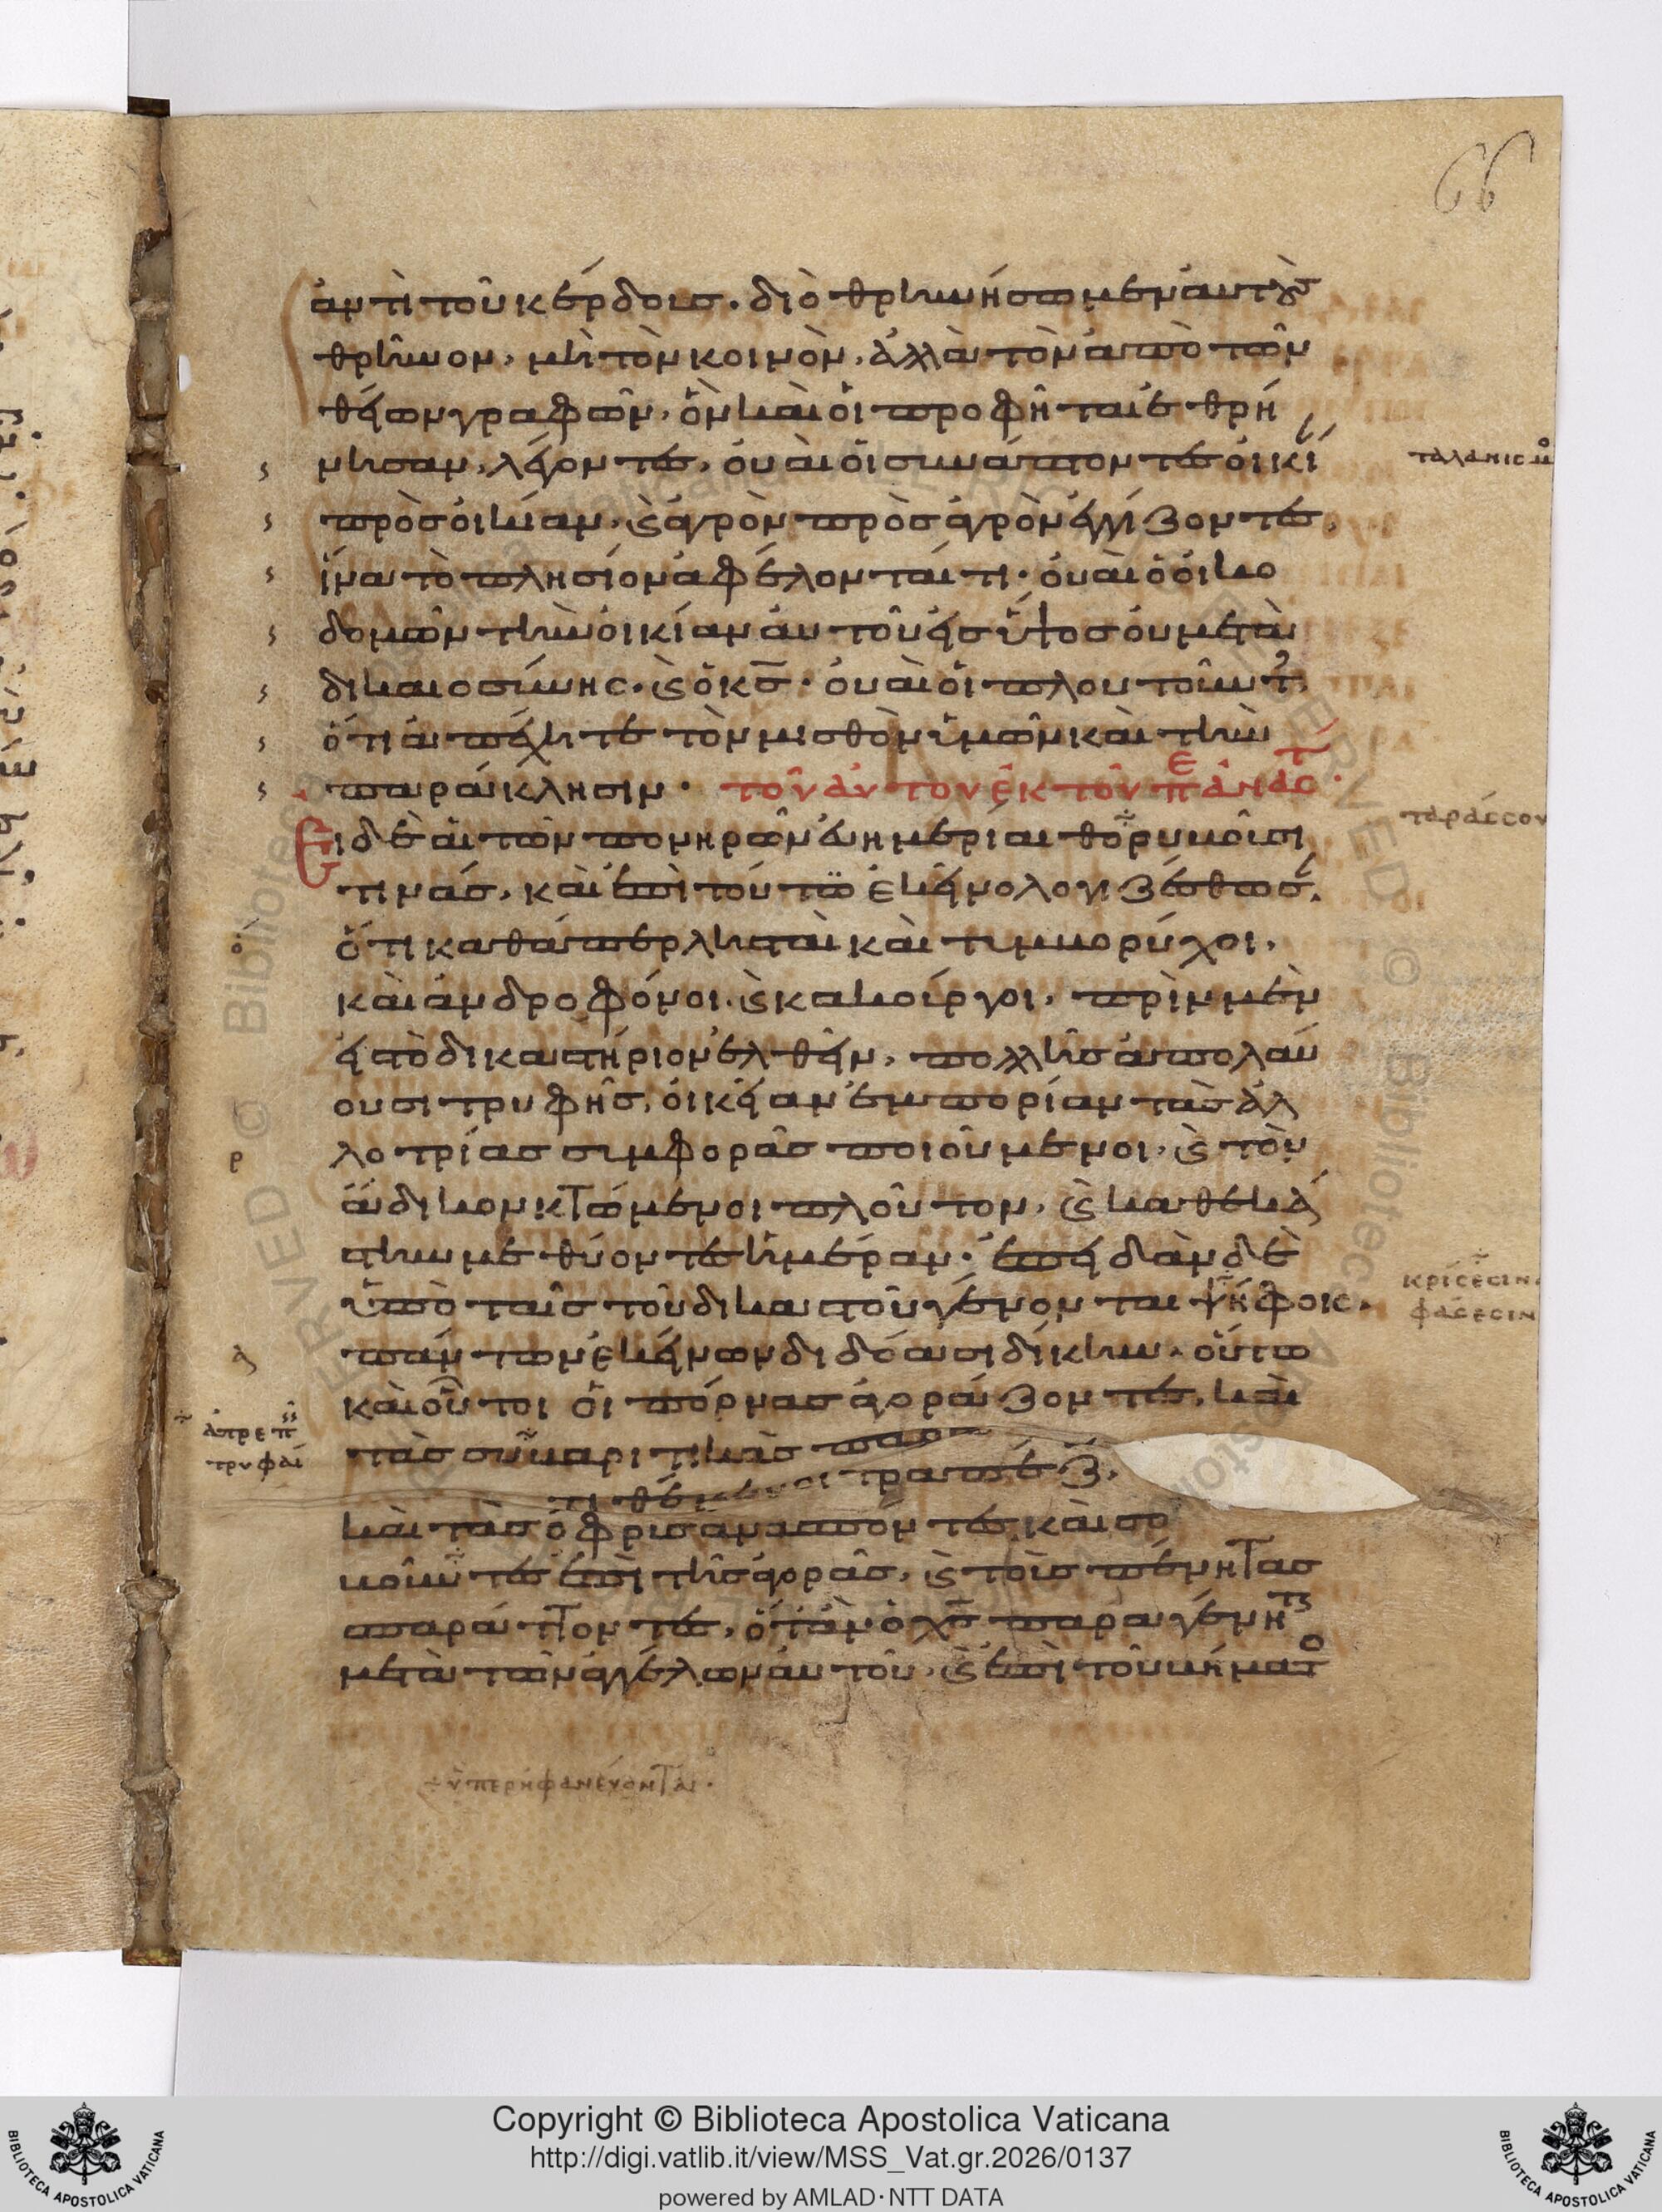 66
ἀντὶ τοῦ κέρδους. διὸ θρηνήσωμεν αὐτοὺς
θρῆνον, μὴ τὸν κοινὸν, ἀλλὰ τὸν ἀπὸ τῶν
θείων γραφῶν, ὃν καὶ οἱ προφῆται ἐθρή
νησαν, λέγοντες, οὐαὶ οἱ συνάπτοντες οἰκί
πρὸς οἰκίαν, ϗ ἀγρὸν πρὸς ἀγρὸν ἐγγίζοντες,
ἵνα τὸ πλησίον ἀφέλονταί τι· οὐαὶ ὁ οἰκο
δομῶν τὴν οἰκίαν αὐτοῦ εἰς ὕψος οὐ μετὰ
δικαιοσύνης. ϗ ὁ κς̅· οὐαὶ οἱ πλουτοῦντες,
ὅτι ἀπέχητε τὸν μισθὸν ὑμῶν καὶ τὴν
παράκλησιν· τοῦ αὐτοῦ ἐκ τοῦ
Εἰ δὲ αἱ τῶν πονηρῶν εὐημερίαι θορυβοῦσι
τινάς, καὶ ἐπὶ τούτω ἐκεῖνο λογιζέσθωσ,
ὅτι καθάπερ λησταὶ καὶ τυμβορύχοι,
καὶ ἀνδροφόνοι ϗ κακούργοι, πρὶν μὲν
εἰς τὸ δικαστήριον ἐλθεῖν, πολλῆς ἀπολαύ
ουσι τρυφῆς, οἰκείαν ἐμπορίαν τὰς ἀλ
λοτρίας συμφορὰς ποιούμενοι, ϗ τὸν
ἄδικον κτώμενοι πλοῦτον, ϗ καθεκά
στην μεθύοντες ἡμέραν. ἐπειδὰν δὲ
ὑπὸ ταῖς τοῦ δικαστοῦ γένονται ψήφοις,
πάντων ἐκείνων διδόασι δίκην. οὕτω
καὶ οὗτοι οἱ πόρνας ἀγοράζοντες, καὶ
τὰς συβαριτικὰς παρα
τιθέμενοι τραπέζ,
καὶ τὰς ὀφρῦς ἀνασπῶντες, καὶ σο
βοῦντες ἐπὶ τῆς ἀγορᾶς, ϗ τοὺς πένητας
σπαράττοντες, ὅταν ὁ χς̅ παραγένηται
μετὰ τῶν ἀγγέλων αὐτοῦ, ϗ ἐπὶ τοῦ βήματο
ταράσσου
κρίσεσιν,
φάσεσιν
ἀπρεπ
τρυφαί
ὑπερηφανεύονται.
Copyright © Biblioteca Apostolica Vaticana
http://digi.vatlib.it/view/MSS_Vat.gr.2026/0137
powered by AMLAD·NTT DATA
BIBLIOTECA APOSTOLICA VATICANA
BIBLIOTECA APOSTOLICA VATICANA